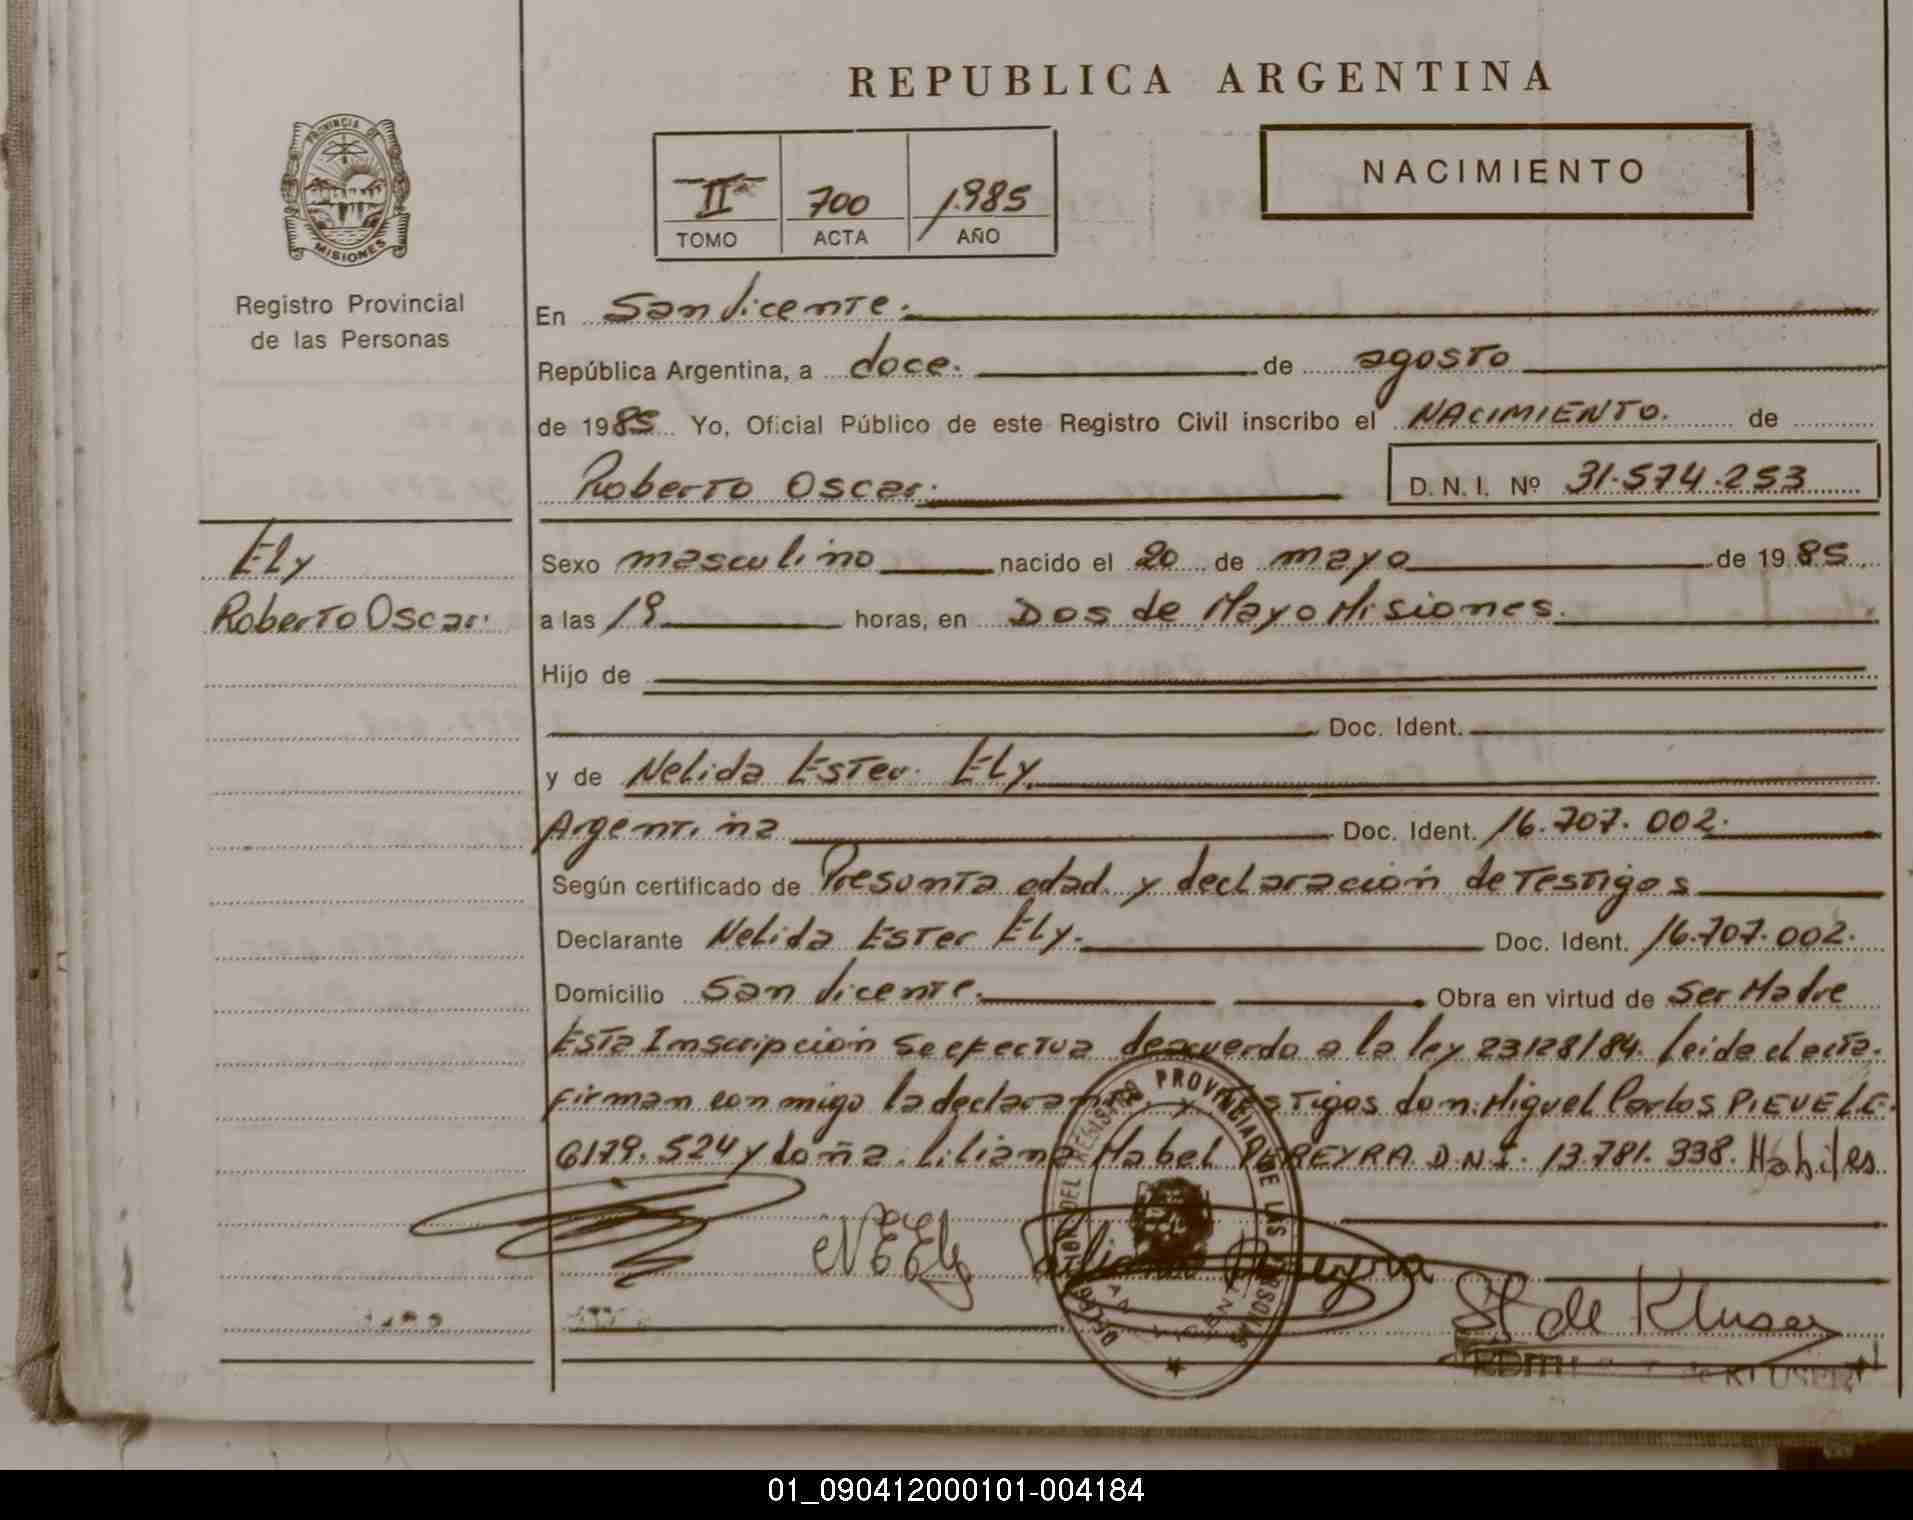 REPUBLICA ARGENTINA
PROVINCIA DE
MISIONES
Registro Provincial
de las Personas
II 700 1.985
TOMO ACTA AÑO
NACIMIENTO
En San Vicente.
República Argentina, a doce. de agosto
de 1985 Yo, Oficial Público de este Registro Civil inscribo el NACIMIENTO. de
Roberto Oscar. D. N. I. Nº 31.574.253
Ely
Roberto Oscar.
Sexo masculino nacido el 20 de mayo de 1985
a las 19 horas, en Dos de Mayo Misiones.
Hijo de
Doc. Ident.
y de Nelida Ester Ely.
Argentina Doc. Ident. 16.707.002.
Según certificado de Presunta edad. y declaración de Testigos
Declarante Nelida Ester Ely. Doc. Ident. 16.707.002.
Domicilio San Vicente. Obra en virtud de Ser Madre
Esta Inscripción Se efectua deacuerdo a la ley 23128/84. leida el acta.
firman con migo la declarante y Testigos don. Miguel Carlos
6179.524 y doña. Liliana Mabel PEREYRA D.N.I. 13.781.338. Habiles
NEEly
Pereyra
de Kluser
de KLUSER
01_090412000101-004184